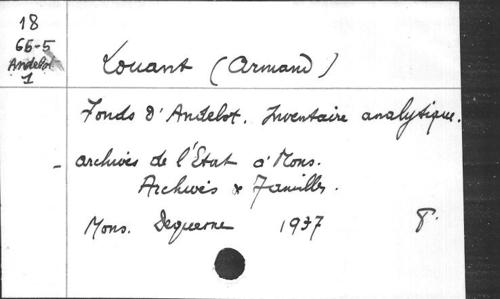 18
66-5
Andelot
1
Louant (Armand)
Fonds d'Andelot. Inventaire analytique.
- archives de l'Etat à Mons.
Archives de Familles.
Mons. Dequesne 1937 8°.